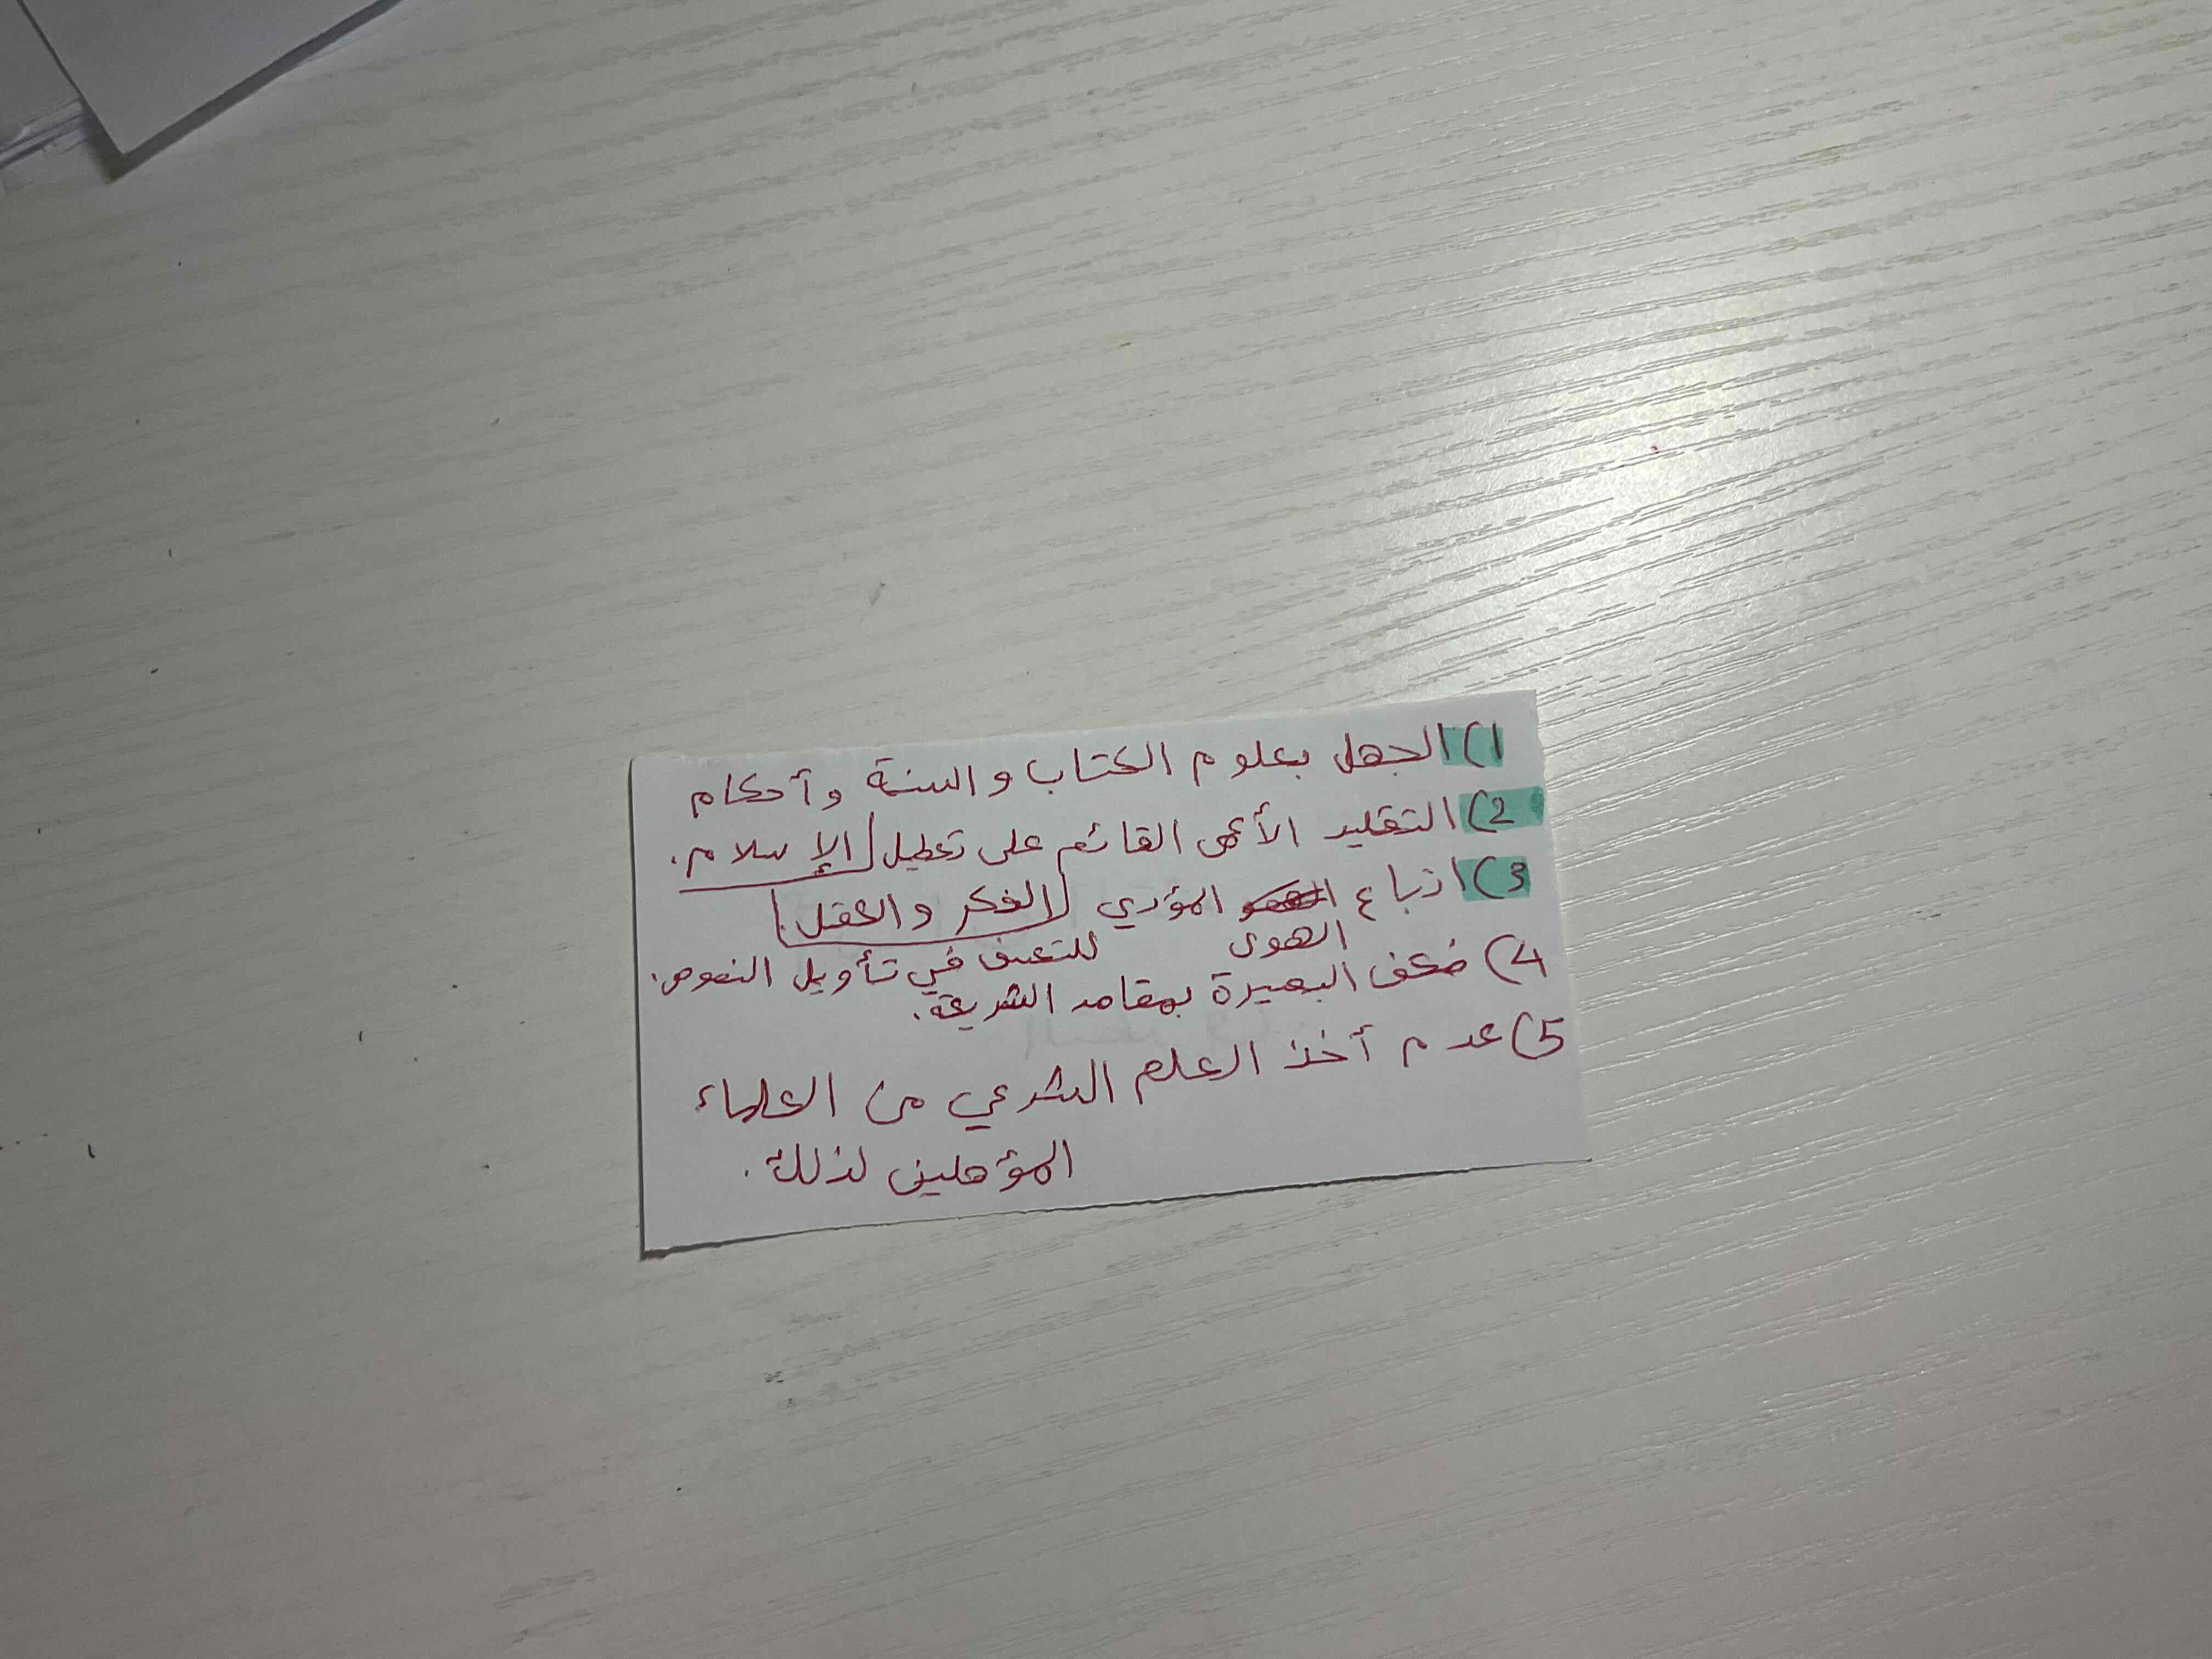 1) الجهل بعلوم الكتاب والسنة وأحكام
2) التقليد الأعمى القائم على تعطيل الإسلام.
3) اتباع المؤدي الفكر والعقل.
الهوى للتعسف في تأويل النصوص.
4) ضعف البصيرة بمقاصد الشريعة.
5) عدم أخذ العلم الشرعي من العلماء
المؤهلين لذلك.